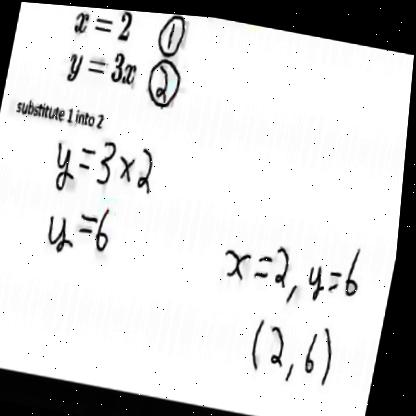 x = 2 ①
y = 3x ②
substitute 1 into 2
y = 3 × 2
y = 6
x = 2, y = 6
(2, 6)